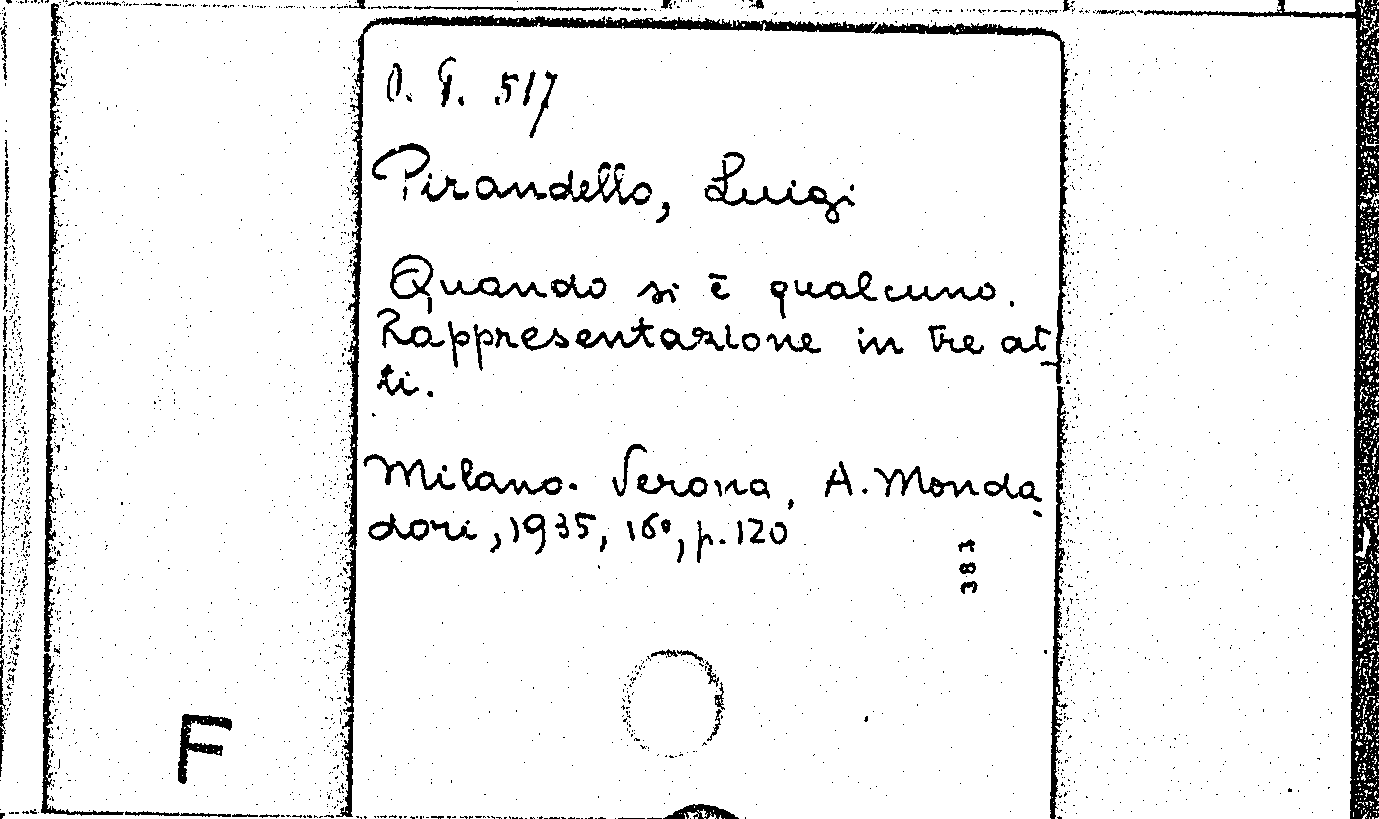 O. G. 517
Pirandello, Luigi
Quando si è qualcuno.
Rappresentazione in tre at-
ti.
Milano-Verona, A. Monda-
dori, 1935, 16º, p. 120
381
F